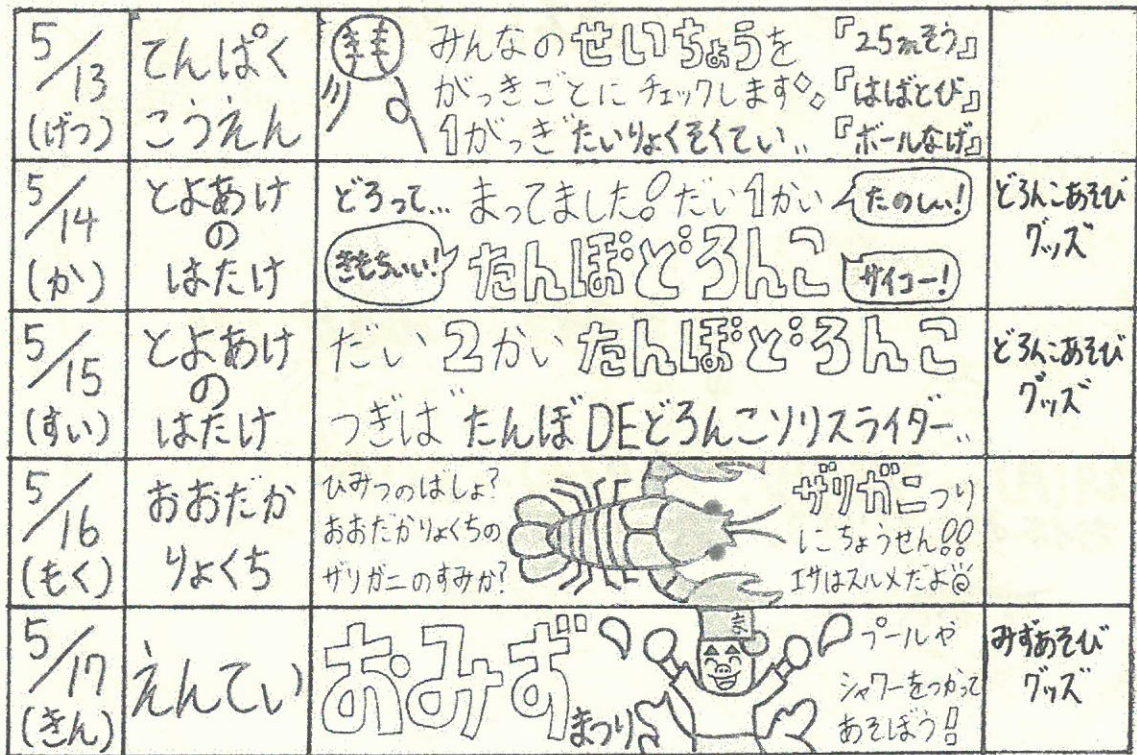 5/13
(げつ)
てんぱく
こうえん
みんなのせいちょうを
がっきごとにチェックします
1がっき"たいりょくそくてい"
『25mそう』
『はばとび』
『ボールなげ』
5/14
(か)
とよあけ
の
はたけ
どろって… まってました!だい1かい
たのしい!
きもちいい!
たんぼどろんこ
サイコー!
どろんこあそび
グッズ
5/15
(すい)
とよあけ
の
はたけ
だい2かいたんぼどろんこ
つぎは"たんぼDEどろんこソリスライダー"
どろんこあそび
グッズ
5/16
(もく)
おおだか
りょくち
ひみつのばしょ?
おおだかりょくちの
ザリガニのすみか?
ザリガニつり
にちょうせん!!
エサはスルメだよ
5/17
(きん)
えんてい
おみずまつり
プールや
シャワーをつかって
あそぼう!
みずあそび
グッズ